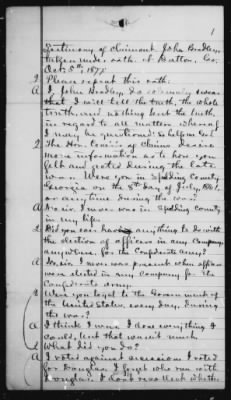 1
Testimony of Claimant John Bradley,
taken under oath. at Dalton, Ga.
Oct. 5th, 1877
Q Please repeat this oath:
A I, John Bradley, do solemnly swear
that I will tell the truth, the whole
truth, and nothing but the truth,
in regard to all matters whereof
I may be questioned: So help me God.
Q The Hon. Com'rs of Claims desire
more information as to how you
felt and acted during the late
war. Were you in Spalding County
Georgia on the 5th day of July 1861.
or any time during the war?
A No sir, I never was in Spalding County
in my life.
Q Did you ever have any thing to do with
the election of officers in any Company
anywhere, for the Confederate Army?
A No sir, I never was present when officers
were elected in any company for the
Confederate Army.
Q Were you loyal to the Government of
the United States, every day, during
the war?
A I think I was. I done everything I
could, but that wasn't much.
Q What did you do?
A I voted against secession. I voted
for Douglas. I forget who run with
Douglas. I don't recollect whether